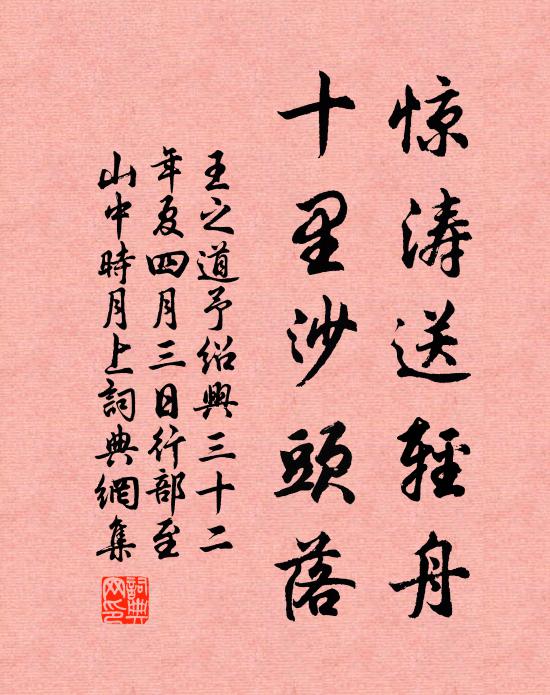 惊涛送輕舟
十里沙頭落
王之道予紹興三十二
年夏四月三日行部至
山中時月上詞典網集
詞典
网印